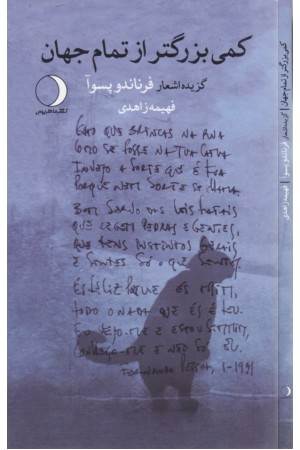 کمی بزرگتر از تمام جهان
گزیده اشعار فرناندو پسوآ
فهیمه زاهدی
GATO QUE BRINCAS NA RUA
COMO SE FOSSE NA CAMA
INVEJO A SORTE QUE É TUA
PORQUE NEM SORTE SE CHAMA.
BOM SERVO DAS LEIS FATAIS
QUE REGEM PEDRAS E GENTES,
QUE TENS INSTINTOS GERAIS
E SENTES SÓ O QUE SENTES.
ÉS FELIZ PORQUE ÉS ASSIM,
TODO O NADA QUE ÉS É TEU.
EU VEJO-ME E ESTOU SEM MIM,
CONHEÇO-ME E NÃO SOU EU.
FERNANDO PESSOA, 1-1931
کمی بزرگتر از تمام جهان | گزیده اشعار فرناندو پسوآ | فهیمه زاهدی